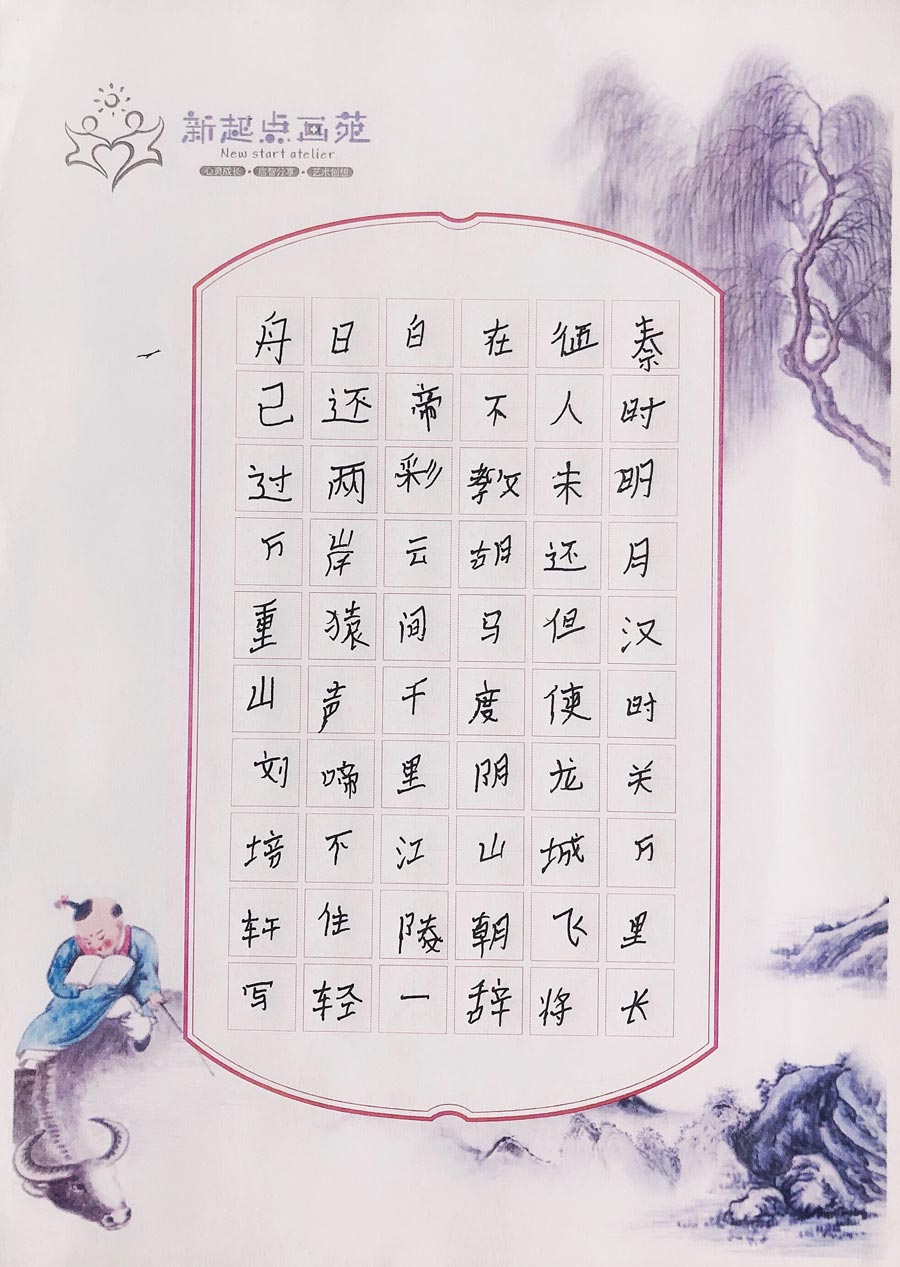 新起点画苑
New start atelier
心灵成长·启智分享·艺术创想
秦时明月汉时关万里长
征人未还但使龙城飞将
在不教胡马度阴山朝辞
白帝彩云间千里江陵一
日还两岸猿声啼不住轻
舟已过万重山刘培轩写